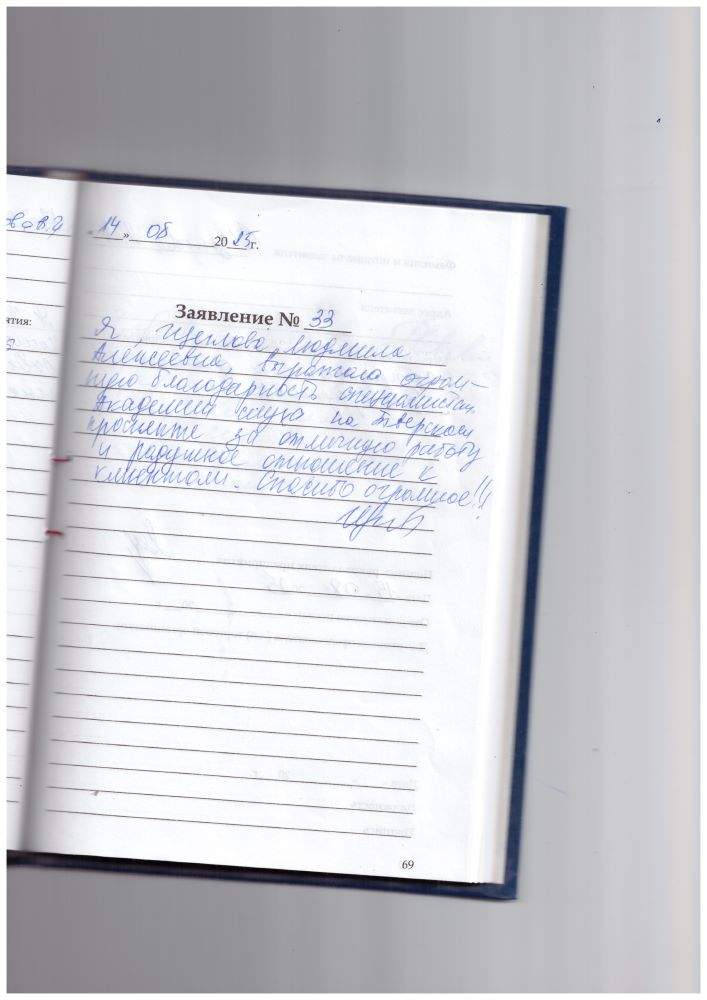 «14» 08 2025г.
Заявление № 33
Я, Щеглова Людмила
Алексеевна, выражаю огром-
ную благодарность специалистам
Академии слуха на Тверском
проспекте за отличную работу
и радушное отношение к
клиентам. Спасибо огромное!!!
ятия:
69